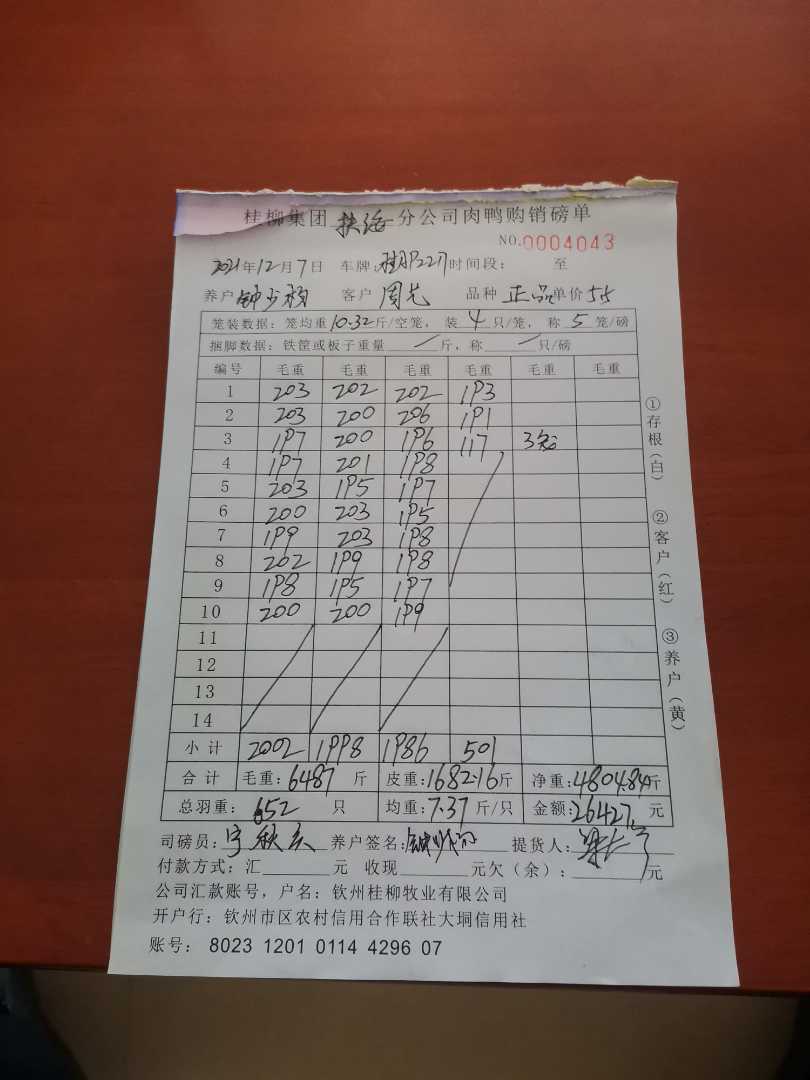 桂柳集团 扶海 分公司肉鸭购销磅单
NO.0004043
2021年12月7日 车牌: 时间段: 至
养户 钟 客户 周 品种 正品 单价 5.5
笼装数据: 笼均重10.32斤/空笼, 装4只/笼, 称5笼/磅
捆脚数据: 铁筐或板子重量 / 斤, 称 / 只/磅
编号 毛重 毛重 毛重 毛重 毛重 毛重
1 203 202 202 193
2 203 200 206 191
3 197 200 196 117 3笼
4 197 201 198
5 203 195 197
6 200 203 195
7 199 203 198
8 202 199 198
9 198 195 197
10 200 200 199
11
12
13
14
小计 2002 1998 1986 501
合计 毛重:6487 斤 皮重:1682.16斤 净重:4804.84斤
总羽重: 652 只 均重:7.37斤/只 金额:26427元
司磅员: 养户签名: 提货人:
付款方式: 汇 元 收现 元欠(余): 元
公司汇款账号, 户名: 钦州桂柳牧业有限公司
开户行: 钦州市区农村信用合作联社大垌信用社
账号: 8023 1201 0114 4296 07
①存根(白) ②客户(红) ③养户(黄)